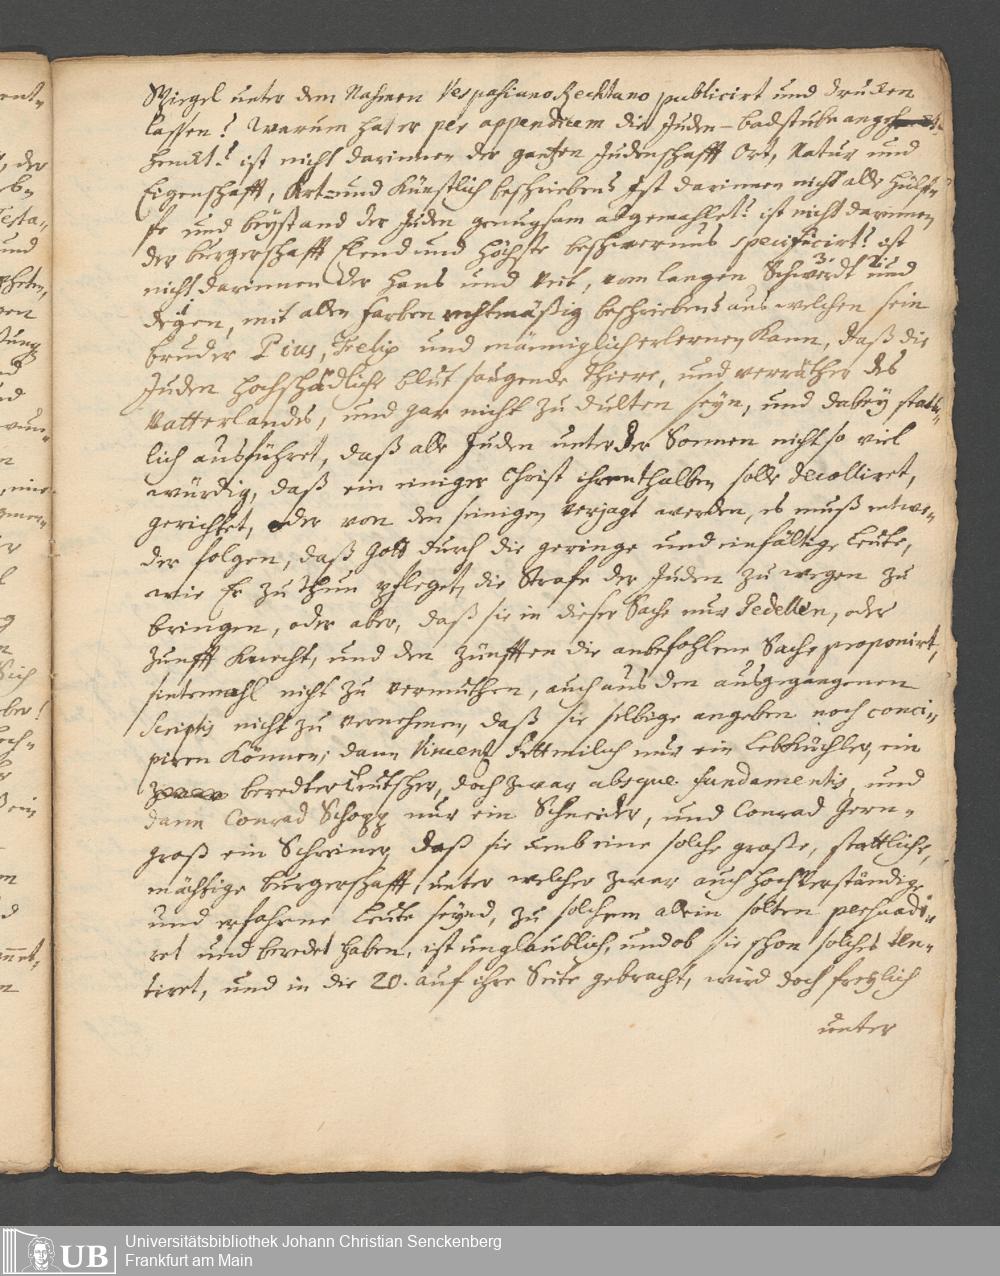 Spiegel unter dem Nahmen Vespasiano Rechtano publicirt und drucken
lassen? Warum hat er per appendicem die Juden-badstube angeh
henckt? ist nicht darinnen der gantzen Judenschafft Ort, Natur und
Eigenschafft, Art und Künstlich beschrieben? Ist darinnen nicht alle hülf-
fe und beystand der Juden genugsam abgemahlet? ist nicht darinnen
der burgerschafft Elend und höchste beschwernus specificirt? ist
nicht darinnen der Hans und Veit, vom langen Schwerdt und
degen, mit allen farben rechtmäßig beschrieben? aus welchen sein
bruder Pius, Felix und männiglich erlernen kann, daß die
Juden hochschädliche blut saugende thiere, und verräther des
Vatterlandes, und gar nicht zu dulten seyn, und dabey statt-
lich ausführet, daß alle Juden unter der Sonnen nicht so viel
würdig, daß ein einiger Christ ihrenthalben solle decolliret,
gerichtet, oder von den seinigen verjagt werden, es muß entwe-
der folgen, daß Gott durch die geringe und einfältige Leute,
wie Er zu thun pfleget, die Strafe der Juden zu wegen zu
bringen, oder aber, daß sie in dieser Sache nur Pedellen, oder
Zunfft Knecht, und den Zünfften die anbefohlene Sache proponirt,
sintemahl nicht zu vermuthen, auch aus den ausgegangenen
Scriptis nicht zu vernehmen, daß sie selbige angeben noch conci-
piren können; dann Vincentz Fettmilch nur ein Lebküchler, ein
beredter Teutscher, doch zwar absque fundamentis, und
dann Conrad Schopp nur ein Schneider, und Conrad Gern-
groß ein Schreiner, daß sie eine solche große, stattliche,
mächtige burgerschafft, unter welcher zwar auch hochverständige
und erfahrne Leute seynd, zu solchem allein solten persuadi-
ret und beredet haben, ist unglaublich, und ob sie schon solches ten-
tiret, und in die 20. auf ihre Seite gebracht, wird doch freylich
unter
Universitätsbibliothek Johann Christian Senckenberg
Frankfurt am Main
UB